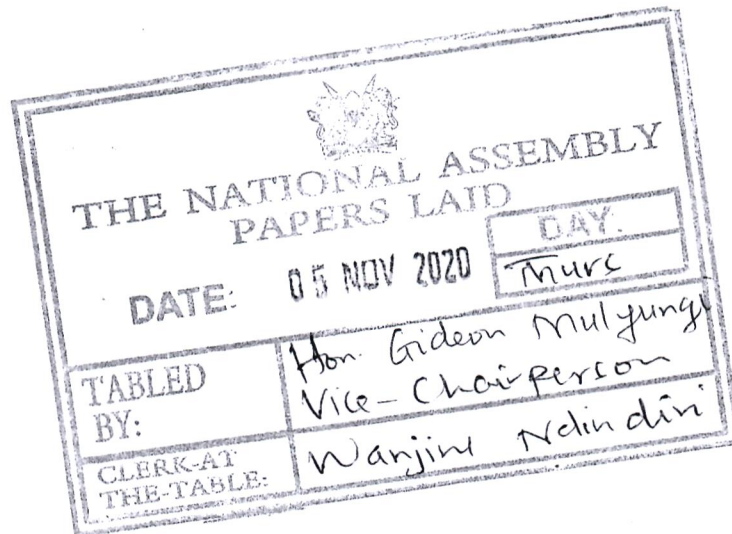 THE NATIONAL ASSEMBLY
PAPERS LAID
DATE: 05 NOV 2020
DAY.
Thurs
TABLED
BY:
Hon. Gideon Mulyungi
Vice-Chairperson
CLERK-AT
THE-TABLE:
Wanjiru Ndindiri